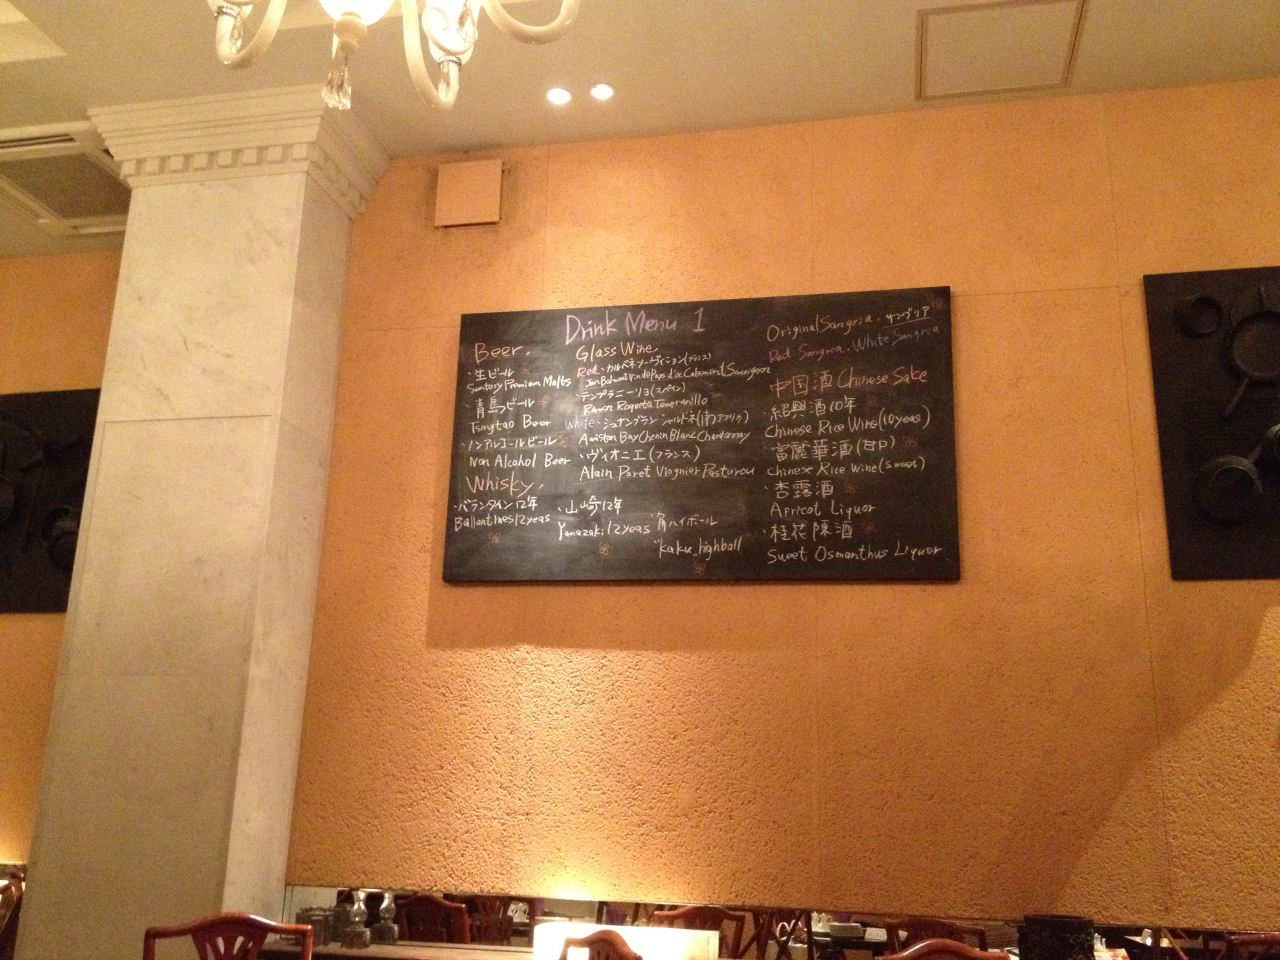 Drink Menu 1
Beer.
・生ビール
Suntory Premium Malts
・青島ビール
Tsingtao Beer
・ノンアルコールビール
Non Alcohol Beer
Whisky.
・バランタイン12年
Ballantines 12yeas
・山崎12年
Yamazaki 12yeas
・角ハイボール
"kaku highball
Glass Wine.
Red・カルベネソーヴィニョン(フランス)
Cabernet Sauvignon
・テンプラニーリョ(スペイン)
Ramon Roqueta Temeranillo
White・シュナンブラン シャルドネ(南アフリカ)
Aniston Bay Chenin Blanc Chardonnay
・ヴィオニエ(フランス)
Alain Paret Viognier Pesturou
Original Sangria. サングリア
Red Sangria. White Sangria
中国酒 Chinese Sake
・紹興酒10年
Chinese Rice Wine(10yeas)
・富麗華酒(甘口)
Chinese Rice Wine(sweet)
・杏露酒
Apricot Liquor
・桂花陳酒
Sweet Osmanthus Liquor